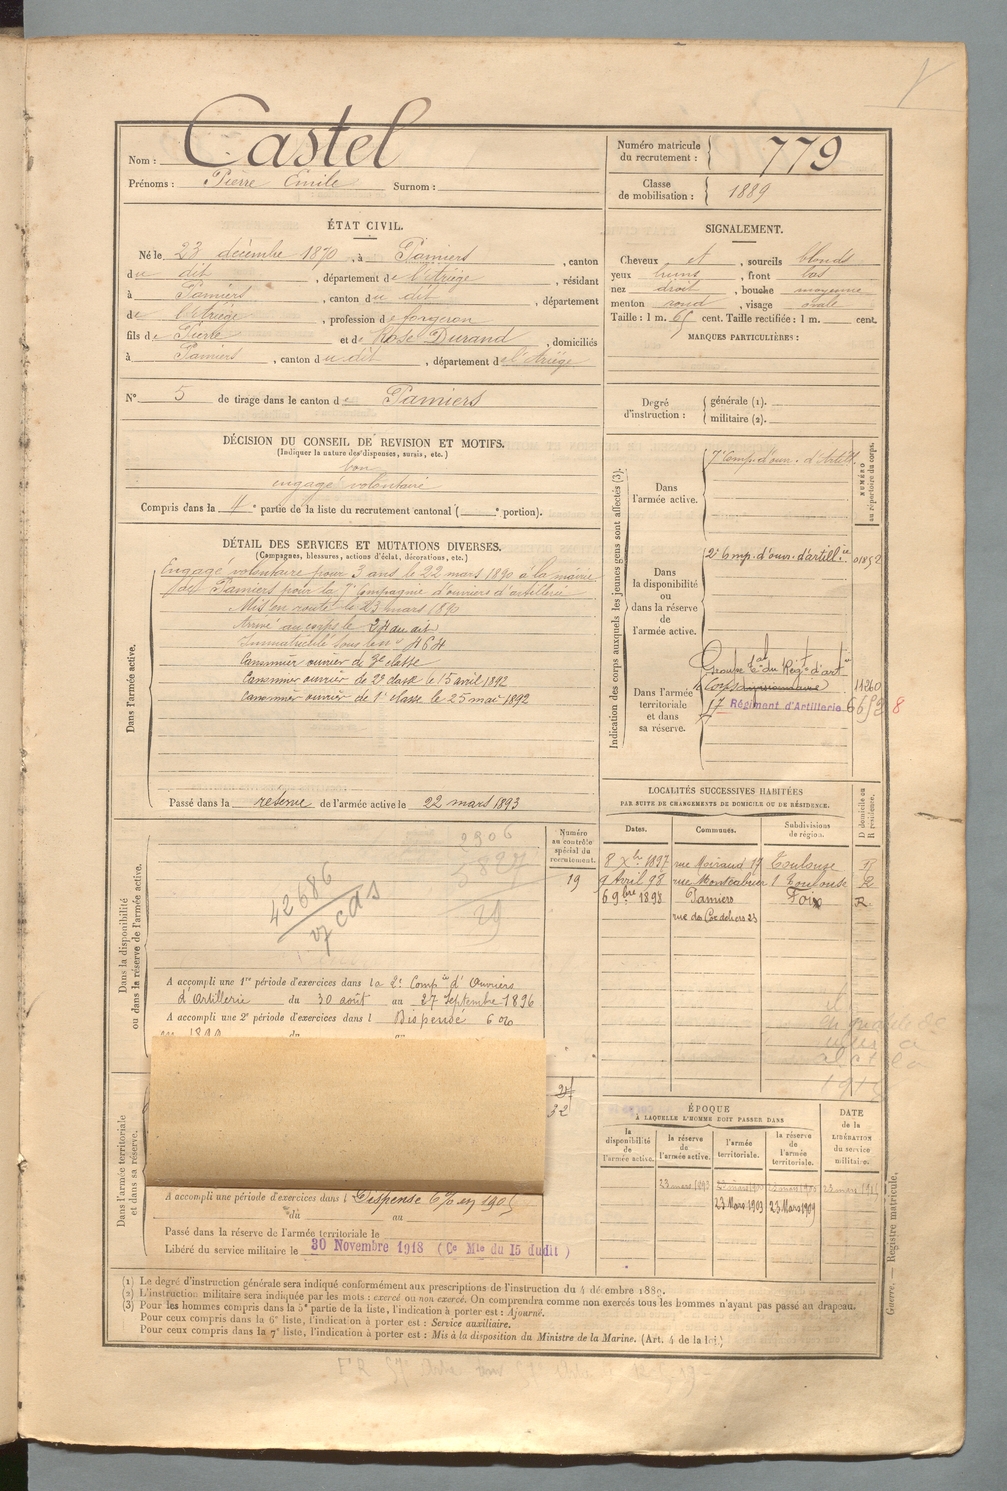 Nom : Castel
Prénoms : Pierre Emile Surnom :
Numéro matricule du recrutement : 779
Classe de mobilisation : 1889
ÉTAT CIVIL.
Né le 23 décembre 1870, à Pamiers, canton
du dit, département de l'Ariège, résidant
à Pamiers, canton du dit, département
de l'Ariège, profession de forgeron
fils de Pierre et de Rose Durand, domiciliés
à Pamiers, canton du dit, département de l'Ariège
N° 5 de tirage dans le canton de Pamiers
SIGNALEMENT.
Cheveux et, sourcils blonds
yeux bruns, front bas
nez droit, bouche moyenne
menton rond, visage ovale
Taille : 1 m. 65 cent. Taille rectifiée : 1 m. cent.
MARQUES PARTICULIÈRES :
Degré d'instruction : générale (1).
militaire (2).
DÉCISION DU CONSEIL DE REVISION ET MOTIFS.
(Indiquer la nature des dispenses, sursis, etc.)
bon
engagé volontaire
Compris dans la 4e partie de la liste du recrutement cantonal ( e portion).
DÉTAIL DES SERVICES ET MUTATIONS DIVERSES.
(Campagnes, blessures, actions d'éclat, décorations, etc.)
Dans l'armée active.
Engagé volontaire pour 3 ans le 22 mars 1890 à la mairie
de Pamiers pour la 7e Compagnie d'ouvriers d'artillerie
Mis en route le 23 mars 1890
Arrivé au corps le 24 au dit
Immatriculé sous le n° 464
Canonnier ouvrier de 3e classe
Canonnier ouvrier de 2e classe le 15 avril 1892
Canonnier ouvrier de 1e classe le 25 mai 1892
Passé dans la réserve de l'armée active le 22 mars 1893
Indication des corps auxquels les jeunes gens sont affectés (3).
NUMÉRO au répertoire du corps.
Dans l'armée active.
7e Comp. d'ouv. d'Artill.
Dans la disponibilité ou dans la réserve de l'armée active.
2e Comp. d'ouv. d'artillie 01852
Dans l'armée territoriale et dans sa réserve.
Groupe tal du Régt d'artie
Corps 11260
17 Régiment d'Artillerie 8
LOCALITÉS SUCCESSIVES HABITÉES
PAR SUITE DE CHANGEMENTS DE DOMICILE OU DE RÉSIDENCE.
Dates. Communes. Subdivisions de région. D domicile ou R résidence.
8 Xbre 1897 rue 17 Toulouse R
9 Avril 98 rue Montcabrier 1 Toulouse R
6 9bre 1898 Pamiers Foix R
rue des Cordeliers 23
Dans la disponibilité ou dans la réserve de l'armée active.
Numéro au contrôle spécial du recrutement.
19
2906
5827
29
42686
17 cdas
A accompli une 1re période d'exercices dans la 2e Compie d'Ouvriers
d'Artillerie du 30 août au 27 Septembre 1896
A accompli une 2e période d'exercices dans l Dispensé 6 0/0
32
Dans l'armée territoriale et dans sa réserve.
A accompli une période d'exercices dans l Dispense 6% en 1905
du au
Passé dans la réserve de l'armée territoriale le
Libéré du service militaire le 30 Novembre 1918 (Ce Mle du 15 dudit)
ÉPOQUE
À LAQUELLE L'HOMME DOIT PASSER DANS
la disponibilité de l'armée active.
la réserve de l'armée active.
l'armée territoriale.
la réserve de l'armée territoriale.
DATE de la LIBÉRATION du service militaire.
23 mars 1893
23 Mars 1903 23 Mars 1909
Guerre. — Registre matricule.
(1) Le degré d'instruction générale sera indiqué conformément aux prescriptions de l'instruction du 4 décembre 1889.
(2) L'instruction militaire sera indiquée par les mots : exercé ou non exercé. On comprendra comme non exercés tous les hommes n'ayant pas passé au drapeau.
(3) Pour les hommes compris dans la 5e partie de la liste, l'indication à porter est : Ajourné.
Pour ceux compris dans la 6e liste, l'indication à porter est : Service auxiliaire.
Pour ceux compris dans la 7e liste, l'indication à porter est : Mis à la disposition du Ministre de la Marine. (Art. 4 de la loi.)